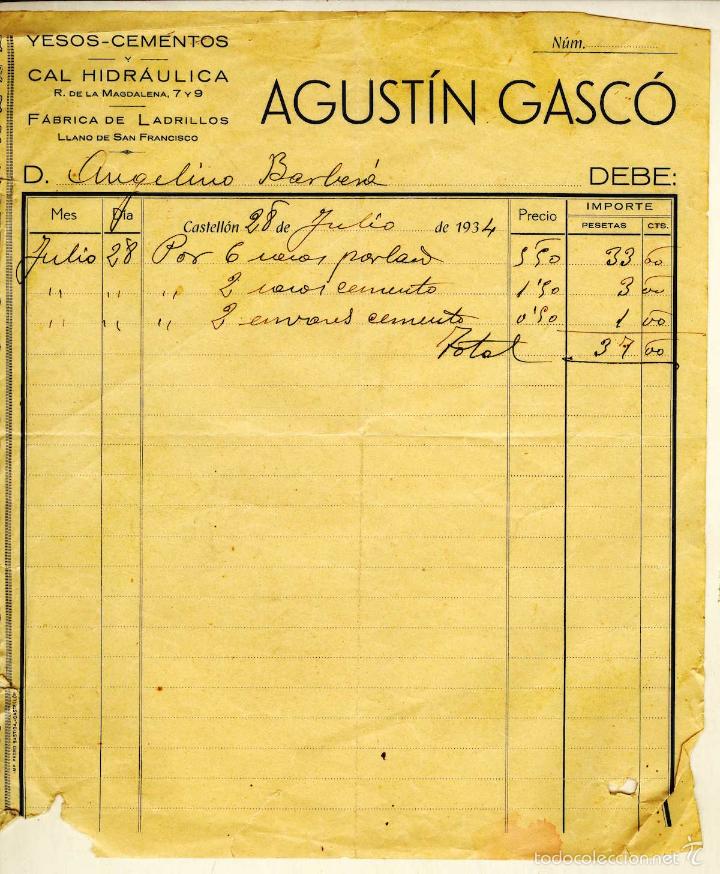 YESOS-CEMENTOS
Y
CAL HIDRÁULICA
R. DE LA MAGDALENA, 7 Y 9
FÁBRICA DE LADRILLOS
LLANO DE SAN FRANCISCO
Núm.
AGUSTÍN GASCÓ
D. Angelino Barberá DEBE:
Mes Día Castellón 28 de Julio de 1934 Precio IMPORTE
PESETAS CTS.
Julio 28 Por 6 sacos porlan 5'50 33 00
" " " 2 sacos cemento 1'50 3 00
" " " 2 envases cemento 0'50 1 00
Total 37 00
todocoleccion.net